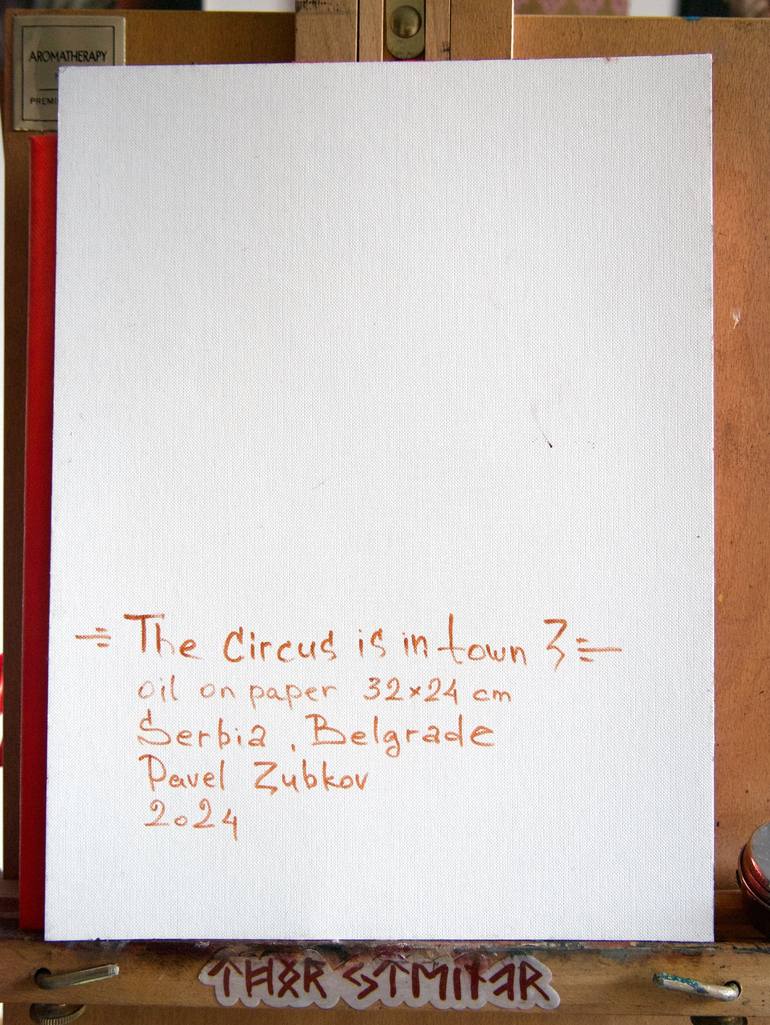 AROMATHERAPY
The circus is in town 3
oil on paper 32×24 cm
Serbia, Belgrade
Pavel Zubkov
2024
THOR STEINAR